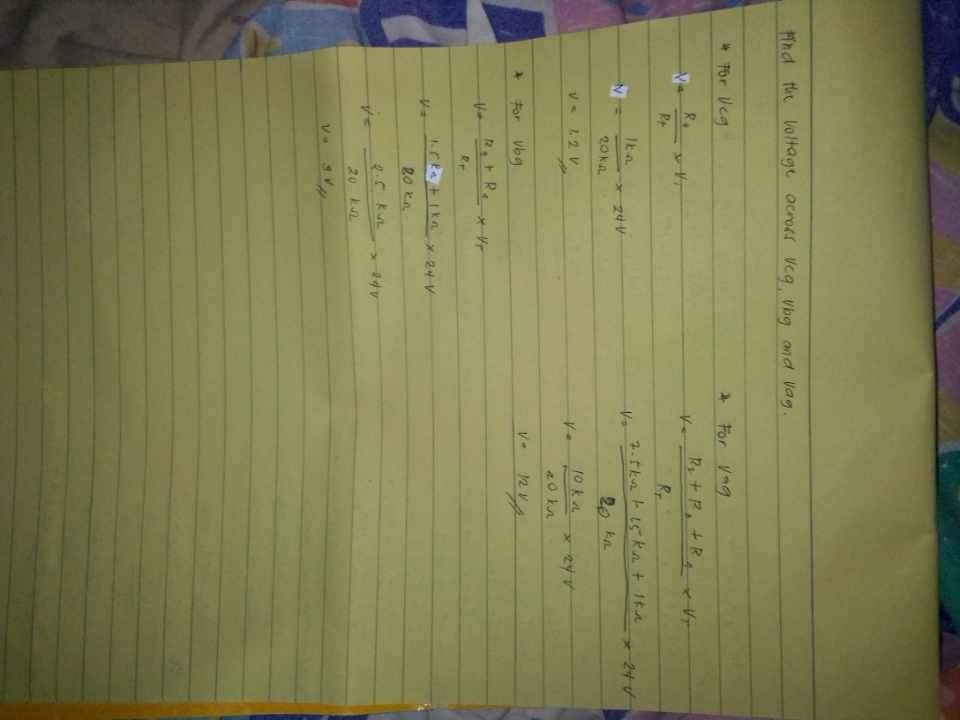 Find the voltage across Vcg, Vbg and Vag.
* For Vcg
V = R4 / RT × VT
V = 1kΩ / 20kΩ × 24V
V = 1.2 V
* For Vbg
V = R3 + R4 / RT × VT
V = 1.5kΩ + 1kΩ / 20 kΩ × 24V
V = 2.5 kΩ / 20 kΩ × 24V
V = 3V
* For Vag
V = R2 + R3 + R4 / RT × VT
V = 7.5kΩ + 1.5kΩ + 1kΩ / 20 kΩ × 24V
V = 10kΩ / 20kΩ × 24V
V = 12V